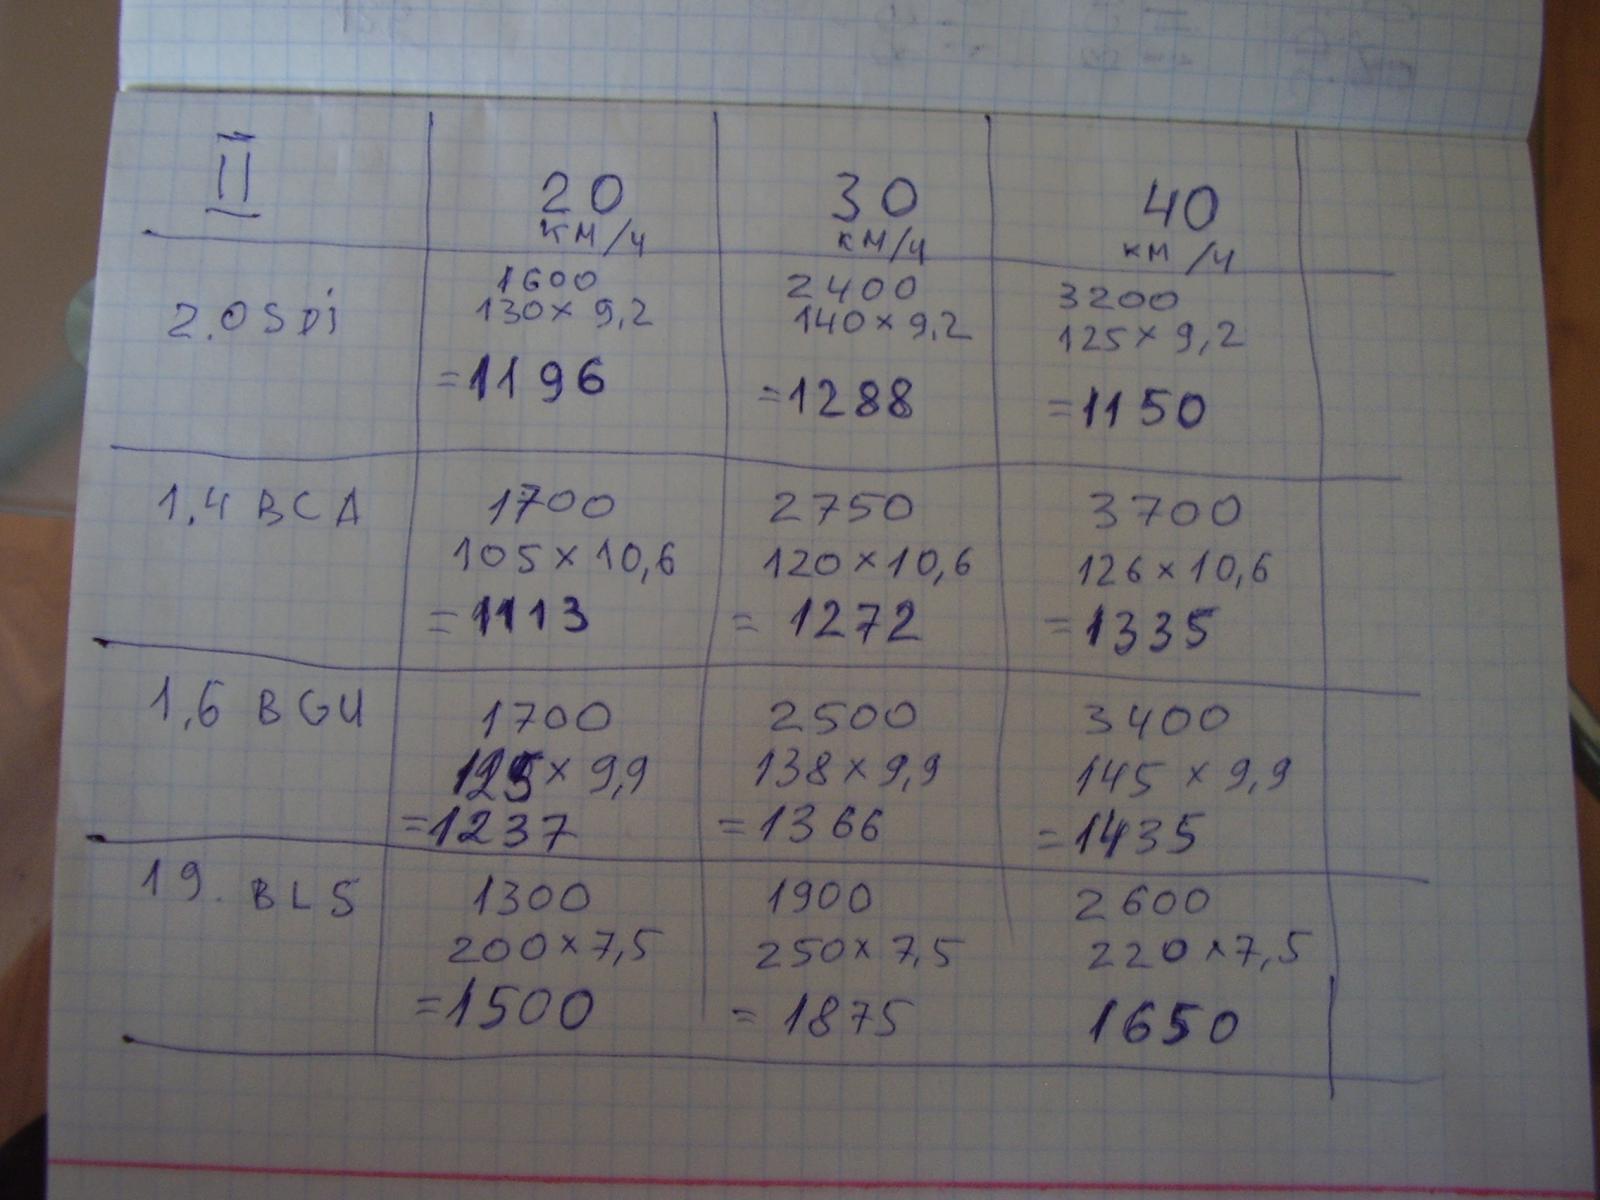 II 20 30 40
км/ч км/ч км/ч
2.0 SDi 1600 2400 3200
130 × 9,2 140 × 9,2 125 × 9,2
=1196 =1288 =1150
1,4 BCA 1700 2750 3700
105 × 10,6 120 × 10,6 126 × 10,6
=1113 = 1272 =1335
1,6 BGU 1700 2500 3400
125 × 9,9 138 × 9,9 145 × 9,9
=1237 =1366 =1435
19. BLS 1300 1900 2600
200 × 7,5 250 × 7,5 220 × 7,5
=1500 = 1875 1650